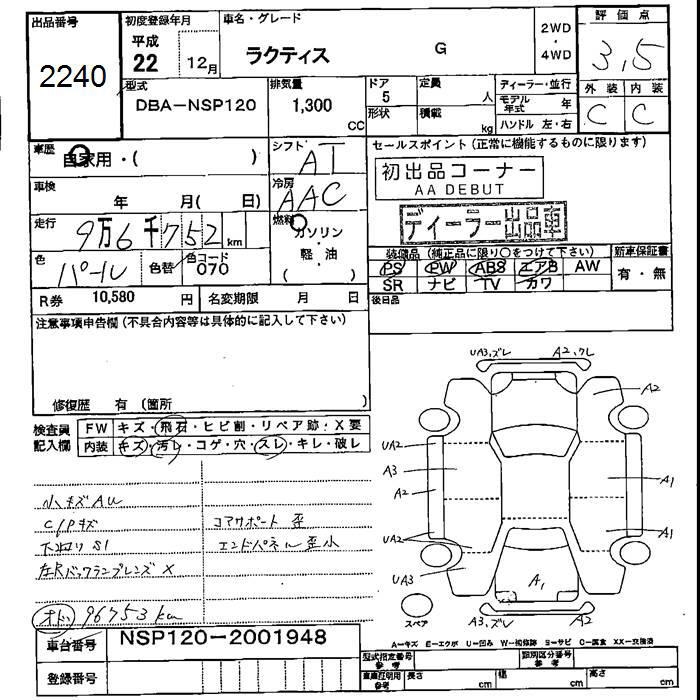 出品番号
2240
初度登録年月
平成
22 12月
車名・グレード
ラクティス G
2WD
・
4WD
評価点
3.5
型式
DBA-NSP120
排気量
1,300
CC
ドア
5
形状
定員
人
積載
kg
ディーラー・並行
モデル年式 年
ハンドル 左・右
外装 内装
C C
車歴
自家用・( )
シフト
AT
車検
年 月( 日)
冷房
AAC
走行
9万6千752 km
燃料
ガソリン
・
軽・油
( )
色
パール
色替
色コード
070
R券 10,580 円
名変期限 月 日
セールスポイント (正常に機能するものに限ります)
初出品コーナー
AA DEBUT
ディーラー出品車
装備品 (純正品に限り○をつけて下さい)
新車保証書
PS PW ABS エアB AW
有・無
SR ナビ TV カワ
後日品
注意事項申告欄 (不具合内容等は具体的に記入して下さい)
修復歴 有 (箇所 )
検査員
記入欄
FW キズ・飛石・ヒビ割・リペア跡・X要
内装 キズ・汚レ・コゲ・穴・スレ・キレ・破レ
小キズAU
C/Pキズ
下廻りS1
左Rバックランプレンズ X
コアサポート 歪
エンドパネル歪小
オドﾒ 96753km
車台番号 NSP120-2001948
登録番号
UA3,ズレ
A2,ワレ
A2
UA2
A3
A2
A1
UA2
A1
UA3
A1
スペア
A3,ズレ
A2
A-キズ E-エクボ U-凹み W-補修跡 S-サビ C-腐食 XX-交換済
型式指定番号
参考
類別区分番号
参考
車庫証明用
参考
長さ cm
幅 cm
高さ cm